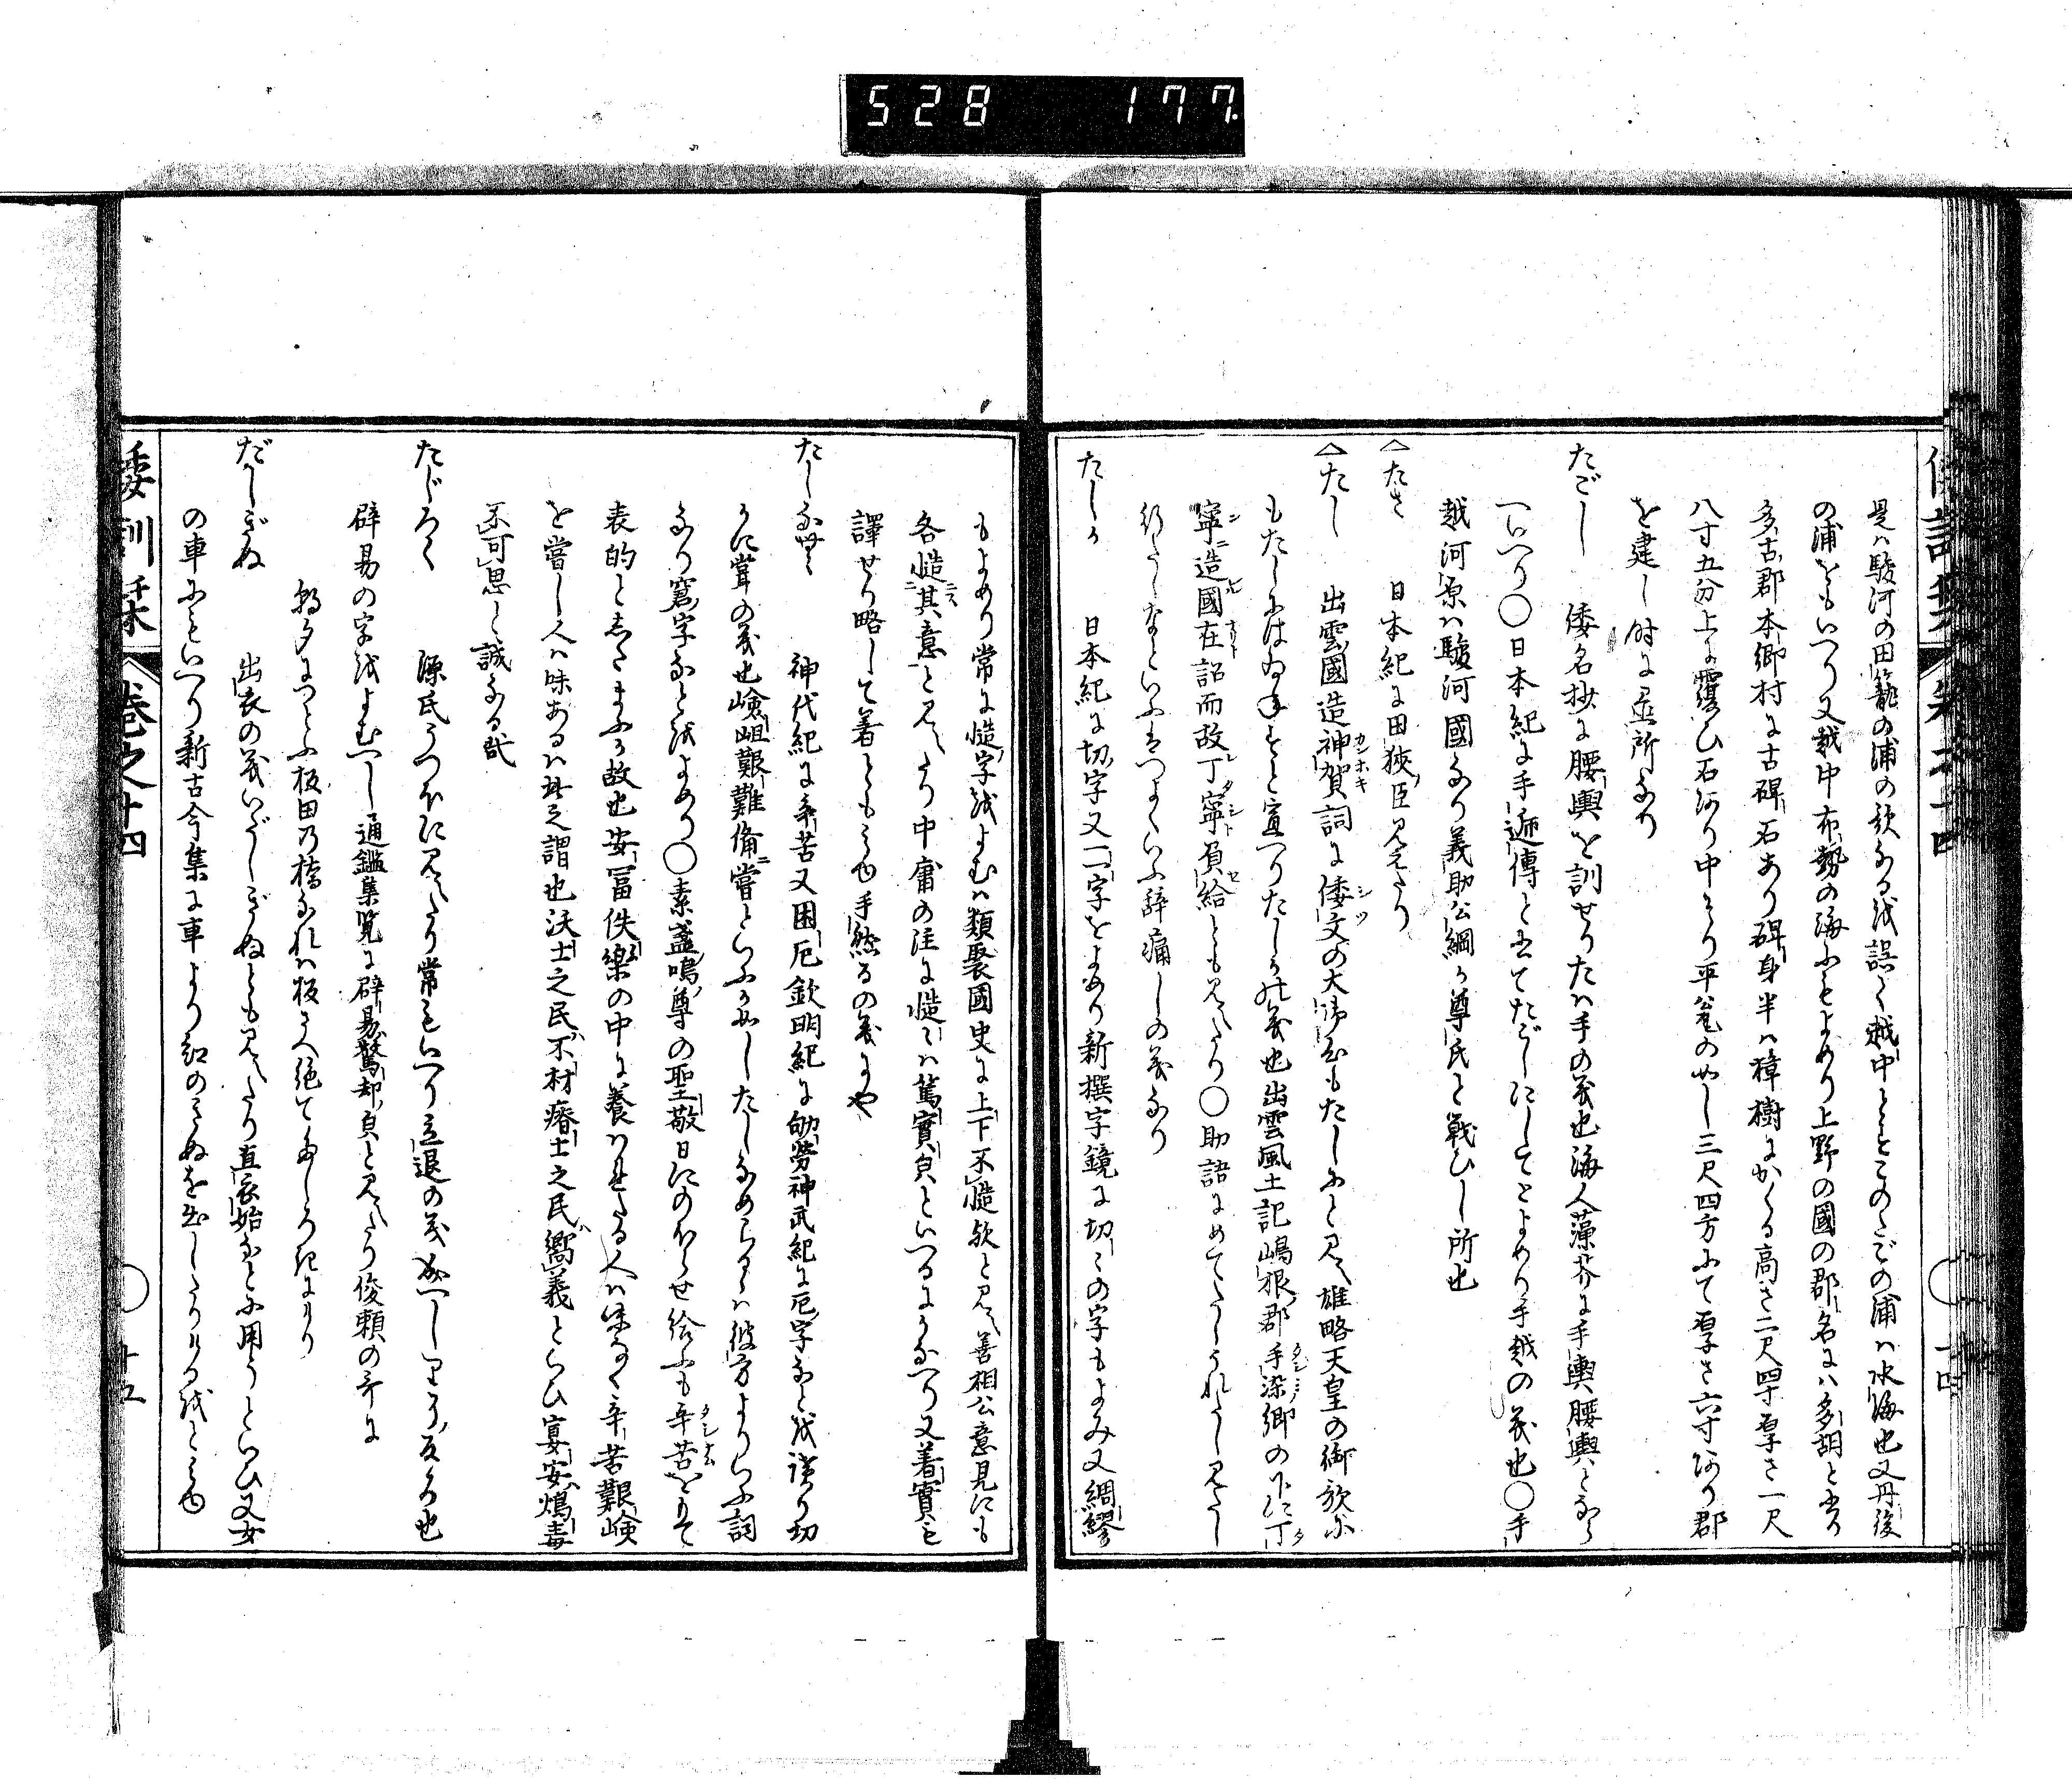 528 177
是ハ駿河の田籠の浦の歌なるを誤て越中とせりこのたごの浦ハ水海也又丹後
の浦ともいへり又越中布勢の海にもよめり上野の國の郡名にハ多胡と書り
多古郡本郷村に古碑石あり碑身半ハ樟樹にかくる高さ二尺四寸厚さ一尺
八寸五分上に覆ひ石あり中より平瓮のめし三尺四方にて厚さ六寸あり郡
を建し時に並所なり
たごし 倭名抄に腰輿を訓せりたハ手の義也海人藻芥に手輿腰輿となら
へいへり〇日本紀に手逓傳と書てたごしにしてとよめり手越の義也〇手
越河原ハ駿河國なり義助公綱か尊氏と戦ひし所也
△たさ 日本紀に田狹臣見えたり
△たし 出雲國造神賀詞に倭文の大御心もたしにと見え雄略天皇の御歌に
もたしにはゐねずと宣へりたしかの義也出雲風土記嶋根郡手染郷の下に丁
寧造國在詔而故丁寧負給とも見えたり〇助語にめでたしうれたし見たし
行たしなといふはつよくいふ辞痛しの義なり
たしか 日本紀に切字又一字をよめり新撰字鏡に切〻の字もよみ又綢繆
もよめり常に慥字をよむハ類聚國史に上下不慥歟と見え善相公意見にも
各慥其意と見えたり中庸の注に慥〻ハ篤實貌といへるにかなへり又着實も
譯せり略して着とももみゆ手然るの義にや
たしなむ 神代紀に辛苦又困厄欽明紀に劬勞神武紀に厄字などを訓り切
かに甞の義也嶮岨艱難備甞といふか如したしなめらるゝハ彼方よりいふ詞
なり窘字などをよめり〇素盞嗚尊の聖敬日にのほらせ給ふも辛苦をもて
表的としたまふか故也安富佚樂の中に養はれたる人ハ味なく辛苦艱嶮
を甞し人ハ味あるハ此之謂也沃土之民不材瘠土之民嚮義といひ宴安鴆毒
不可思と誠なる哉
たじろく 源氏うつほに見えたり常もいへり立退の義成へしりそ反ろ也
辟易の字をよむへし通鑑集覽に辟易驚却貌と見えたり俊頼の哥に
朝夕につたふ板田の橋なれハ板さへ絶てたじろきにけり
だしぎぬ 出衣の義いだしぎぬとも見えたり直衣始などに用うといひ又女
の車にもいへり新古今集に車より紅のきぬを出したりけるをともみゆ
倭訓栞 巻之十四 〇 十五